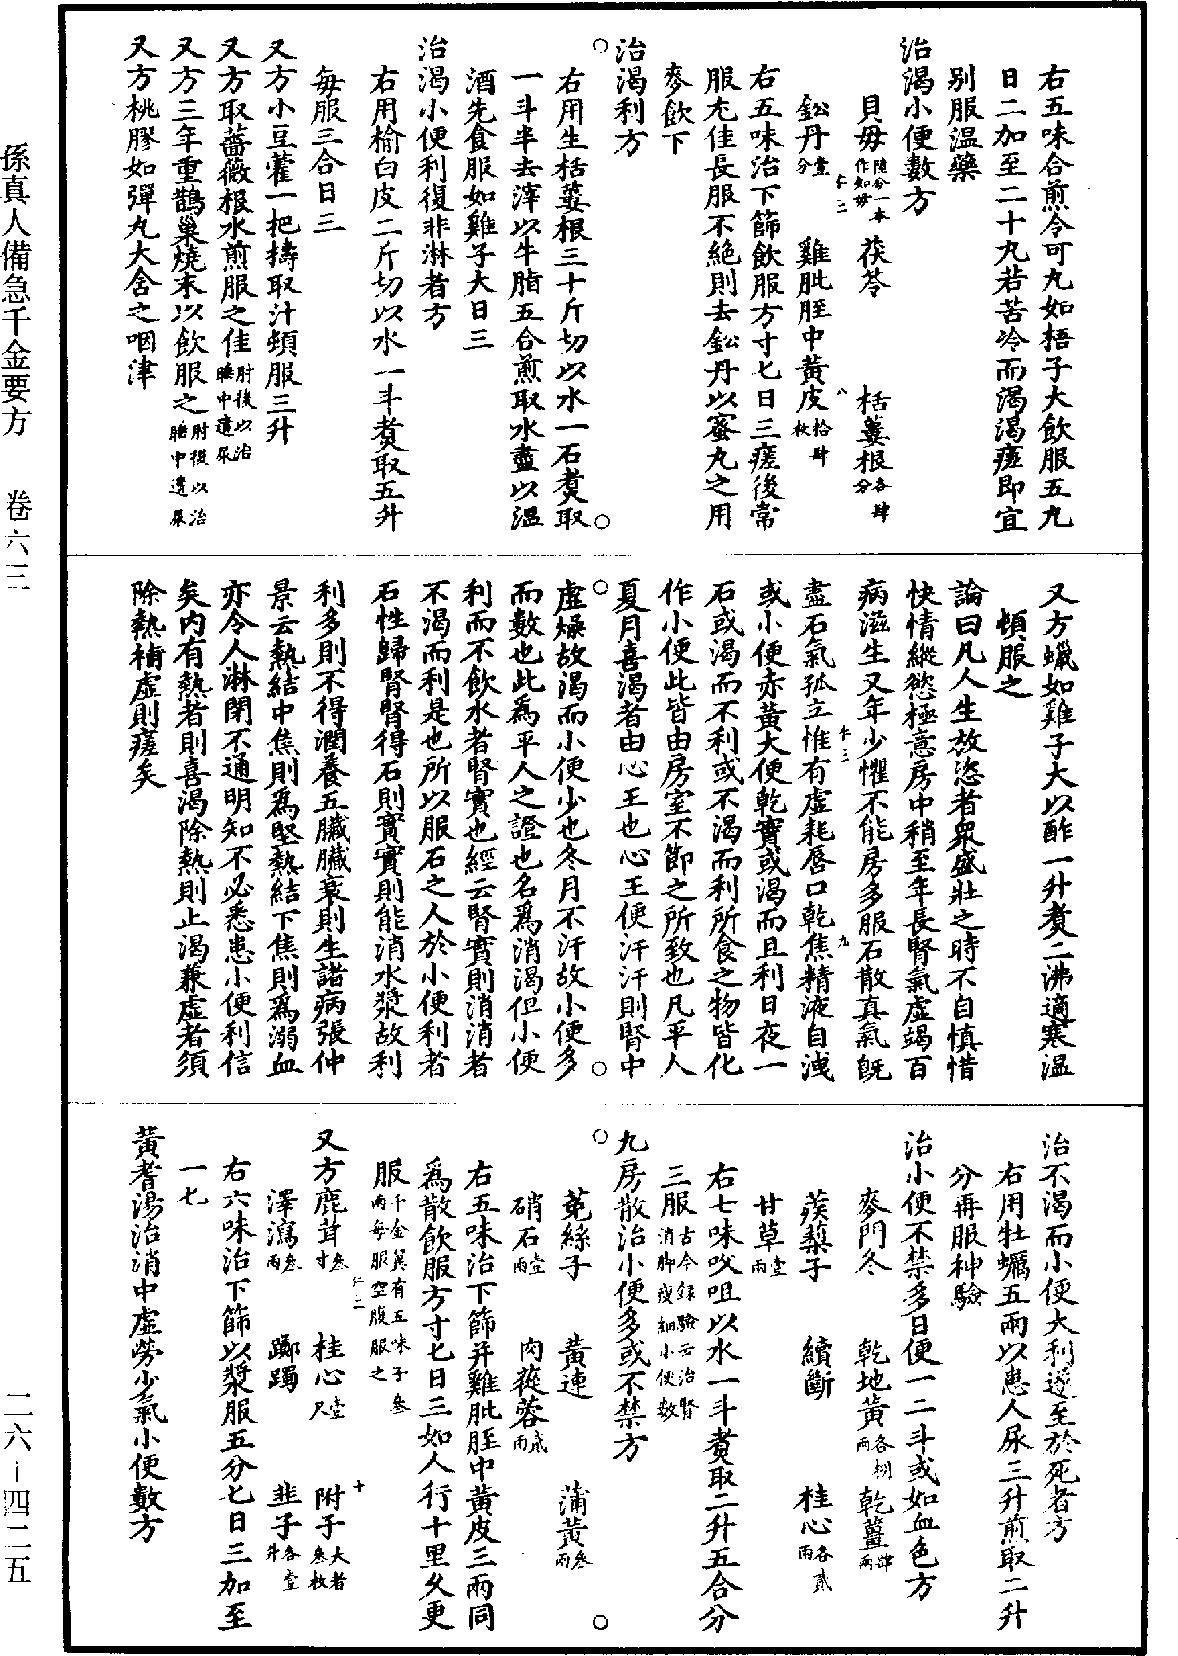 右五味合煎令可丸如梧子大飲服五丸
日二加至二十丸若苦冷而渴渴瘥即宜
别服温藥
治渴小便數方
貝母陸分一本作知母 茯苓 栝蔞根各肆分
鈆丹壹分 雞肶胵中黃皮拾肆枚
右五味治下篩飲服方寸匕日三瘥後常
服尤佳長服不絕則去鈆丹以蜜丸之用
麥飲下
治渴利方
右用生栝蔞根三十斤切以水一石煑取
一斗半去滓以牛脂五合煎取水盡以溫
酒先食服如雞子大日三
治渴小便利復非淋者方
右用榆白皮二斤切以水一斗煑取五升
每服三合日三
又方小豆藿一把擣取汁頓服三升
又方取薔薇根水煎服之佳肘後以治睡中遺尿
又方三年重鵲巢燒末以飲服之肘後以治睡中遺尿
又方桃膠如彈丸大含之咽津
又方蠟如雞子大以酢一升煑二沸適寒溫
頓服之
論曰凡人生放恣者眾盛壯之時不自慎惜
快情縱慾極意房中稍至年長腎氣虛竭百
病滋生又年少懼不能房多服石散真氣旣
盡石氣孤立惟有虛耗唇口乾焦精液自洩
或小便赤黃大便乾實或渴而且利日夜一
石或渴而不利或不渴而利所食之物皆化
作小便此皆由房室不節之所致也凡平人
夏月喜渴者由心王也心王便汗汗則腎中
虛燥故渴而小便少也冬月不汗故小便多
而數也此爲平人之證也名爲消渴但小便
利而不飲水者腎實也經云腎實則消消者
不渴而利是也所以服石之人於小便利者
石性歸腎腎得石則實實則能消水漿故利
利多則不得潤養五臟臟衰則生諸病張仲
景云熱結中焦則爲堅熱結下焦則爲溺血
亦令人淋閉不通明知不必悉患小便利信
矣内有熱者則喜渴除熱則止渴兼虛者須
除熱補虛則瘥矣
治不渴而小便大利遂至於死者方
右用牡蠣五兩以患人尿三升煎取二升
分再服神驗
治小便不禁多日便一二斗或如血色方
麥門冬 乾地黃各捌兩 乾薑肆兩
蒺藜子 續斷 桂心各貳兩
甘草壹兩
右七味㕮咀以水一斗煑取二升五合分
三服古今録驗云治腎消脚瘦細小便數
九房散治小便多或不禁方
菟絲子 黃連 蒲黃叁兩
硝石壹兩 肉蓯蓉貳兩
右五味治下篩并雞肶胵中黃皮三兩同
爲散飲服方寸匕日三如人行十里久更
服千金翼有五味子叁兩每服空腹服之
又方鹿茸叁寸 桂心壹尺 附子大者叁枚
澤瀉叁兩 躑躅 韭子各壹升
右六味治下篩以漿服五分匕日三加至
一匕
黃耆湯治消中虛勞少氣小便數方
孫真人備急千金要方 卷六三 二六—四二五